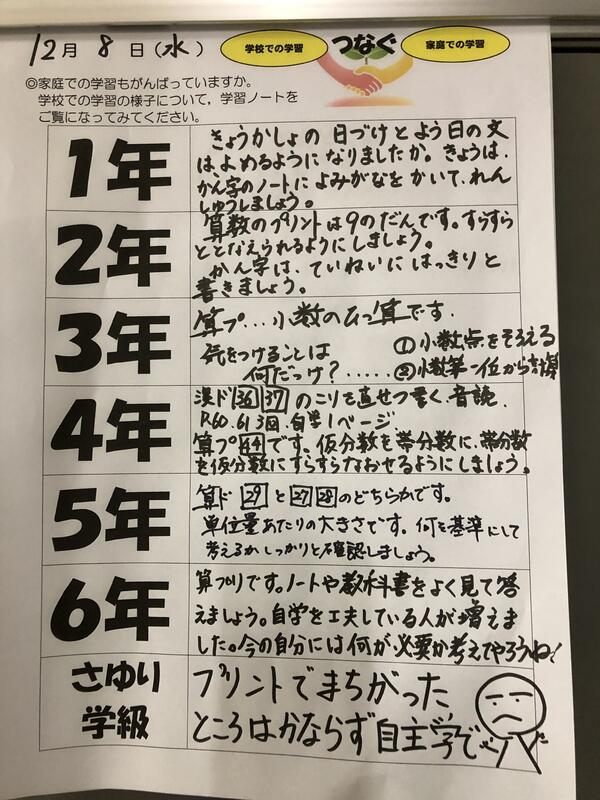 12月 8 日(水)
学校での学習
つなぐ
家庭での学習
◎家庭での学習もがんばっていますか。
学校での学習の様子について，学習ノートを
ご覧になってみてください。
1年
きょうかしょの 日づけと よう日の文
は、よめるように なりましたか。きょうは、
かん字のノートに よみがなを かいて、れん
しゅうしましょう。
2年
算数のプリントは9のだんです。すらすら
ととなえられるようにしましょう。
かん字は、ていねいに はっきりと
書きましょう。
3年
算プ...小数のひっ算です.
気をつけることは
何だっけ？.....
①小数点をそろえる
②小数第一位から計算
4年
漢ド36 37 のこりを直せつ書く、音読
P.60.61 3回、自学1ページ
算プ44です。仮分数を帯分数に、帯分数
を仮分数にすらすらなおせるようにしましょう。
5年
算ド 29 と 27 28 のどちらかです。
単位量あたりの大きさです。何を基準にして
考えるか しっかりと確認しましょう。
6年
算プリです。ノートや教科書をよく見て答
えましょう。自学を工夫している人が増えま
した。今の自分には何が必要か考えてやろうね！
さゆり
学級
プリントでまちがった
ところはかならず自主学で